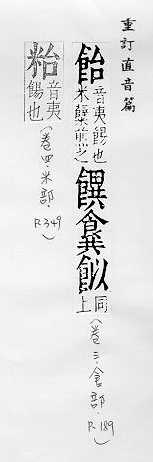 重訂直音篇
飴音夷餳也米糱煎之饌𩜾䬮同上(卷三.食部.P.189)
粭音夷餳也(卷四.米部.P.349)